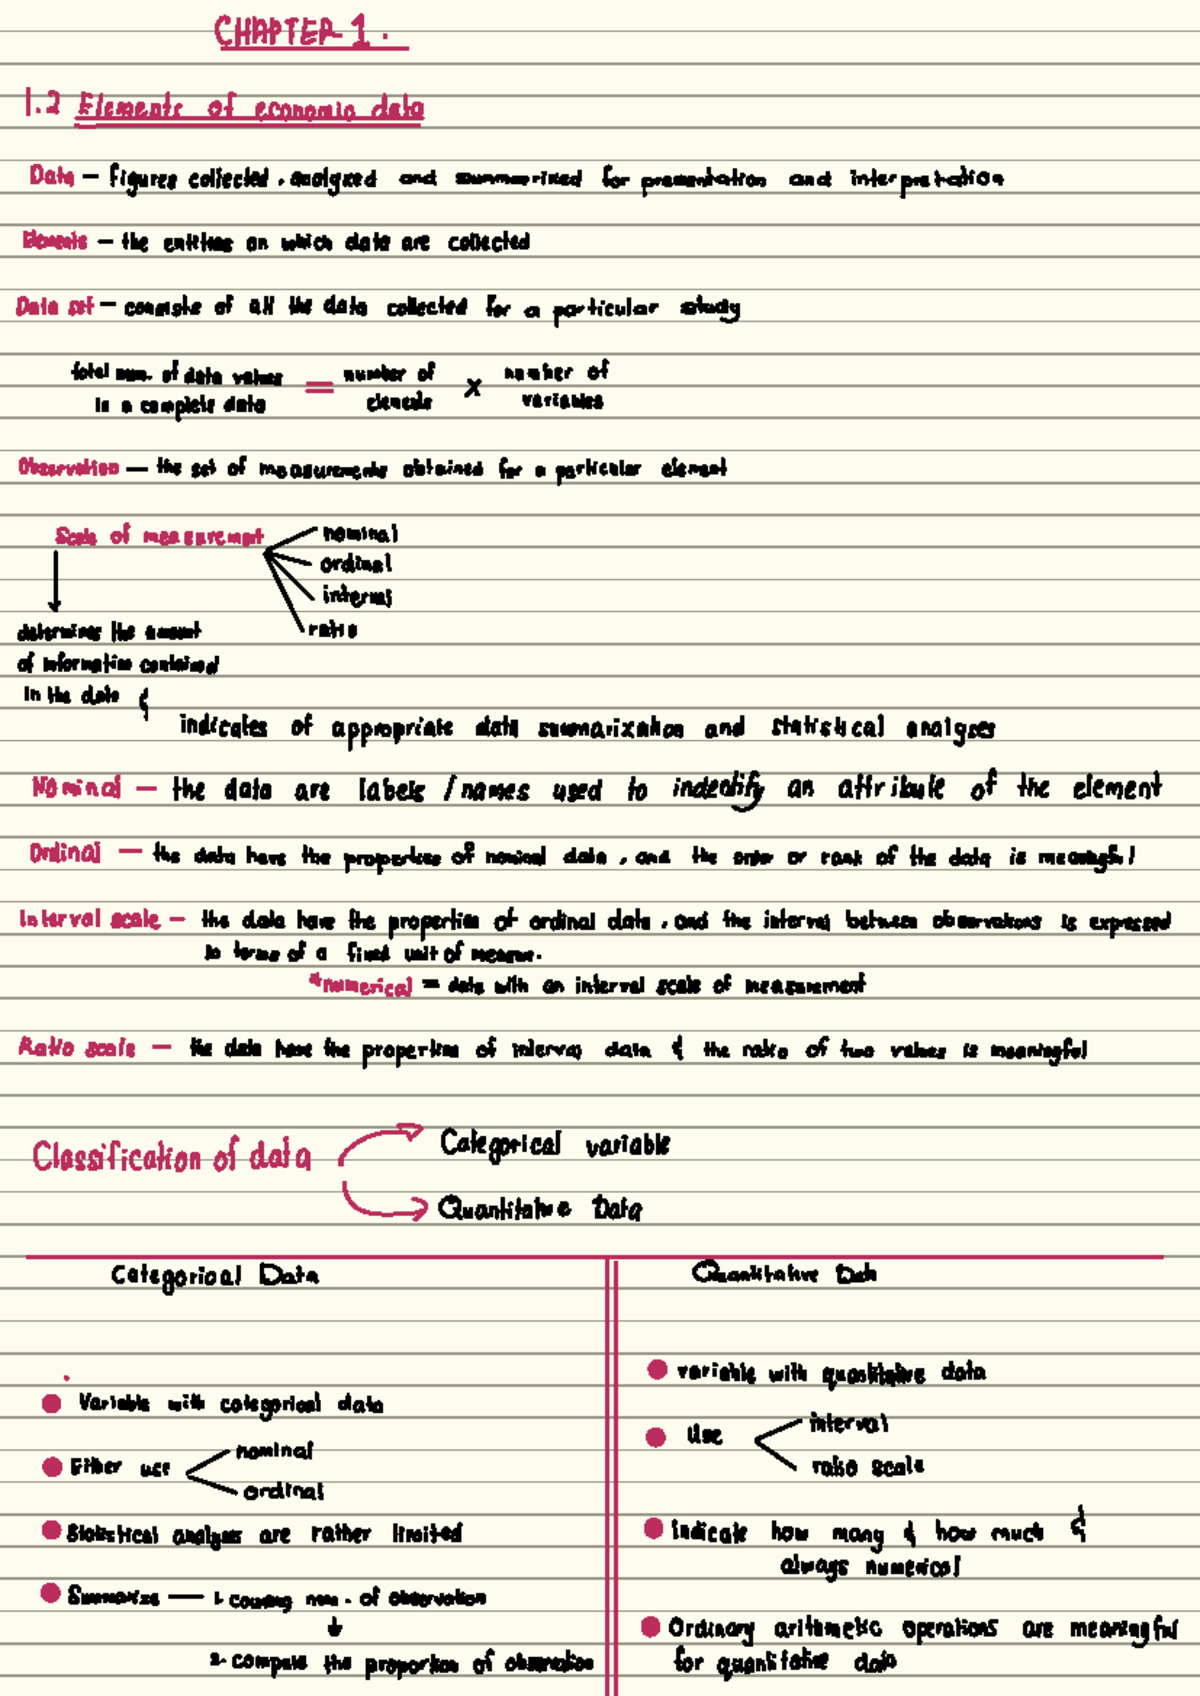 CHAPTER 1.
1.2 Elements of economic data
Data — figures collected, analyzed and summarized for presentation and interpretation
Elements — the entities on which data are collected
Data set — consists of all the data collected for a particular study
total num. of data values = number of × number of
in a complete data elements variables
Observation — the set of measurements obtained for a particular element
Scale of measurement nominal
ordinal
interval
ratio
determines the amount
of information contained
in the data &
indicates of appropriate data summarization and statistical analyses
Nominal — the data are labels / names used to indentify an attribute of the element
Ordinal — the data have the properties of nominal data, and the order or rank of the data is meaningful
Interval scale — the data have the properties of ordinal data, and the interval between observations is expressed
in terms of a fixed unit of measure.
*numerical = data with an interval scale of measurement
Ratio scale — the data have the properties of interval data & the ratio of two values is meaningful
Classification of data
Categorical variable
Quantitative Data
Categorical Data
Variable with categorical data
Either use nominal
ordinal
Statistical analyses are rather limited
Summarize — 1. couning num. of observation
2. compute the proportion of observation
Quantitative Data
variable with quantitative data
Use interval
ratio scale
Indicate how many & how much &
always numerical
Ordinary arithmetic operations are meaningful
for quantitative data